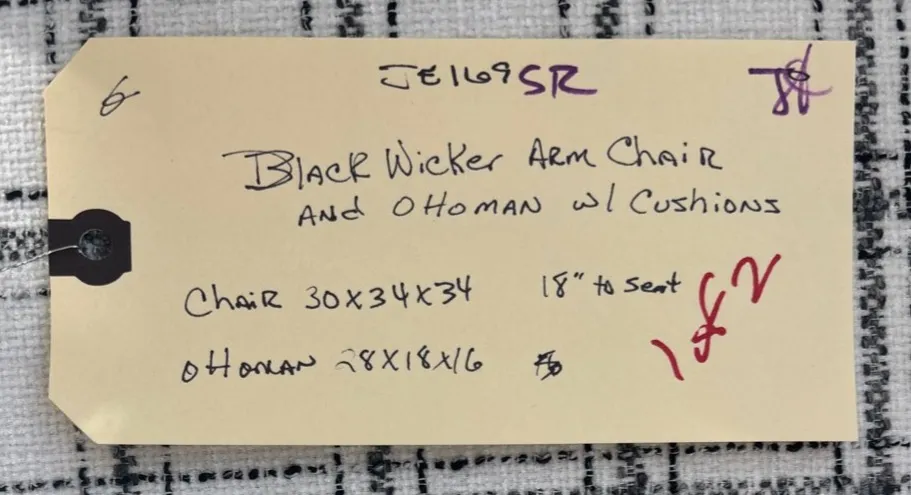 6
JE169 SR
Black Wicker Arm Chair
and Ottoman w/ Cushions
Chair 30x34x34 18" to seat
Ottoman 28x18x16